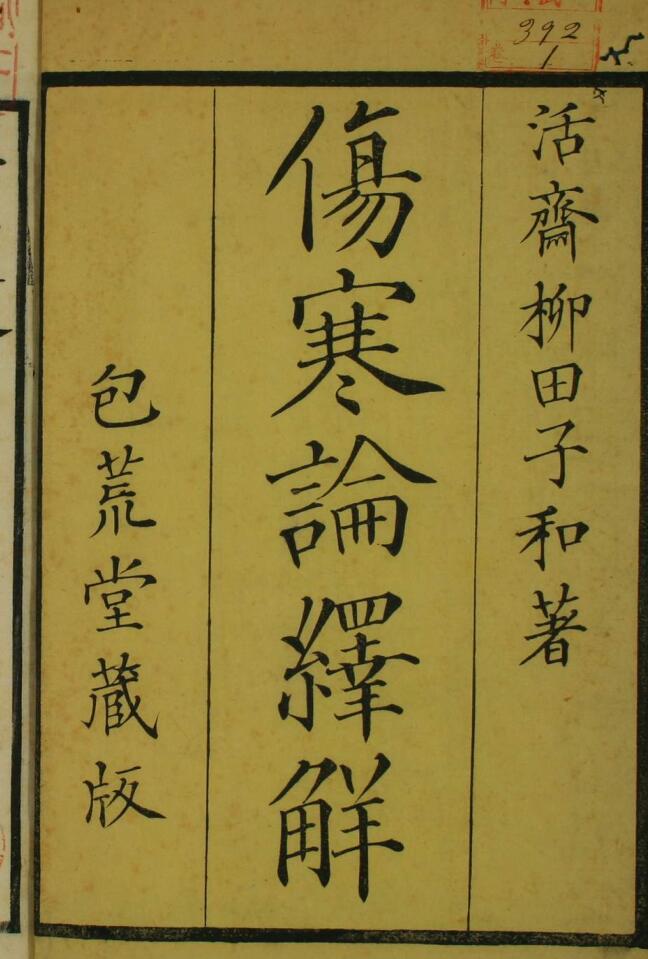 活齋柳田子和著
傷寒論繹觧
包荒堂蔵版
392
1